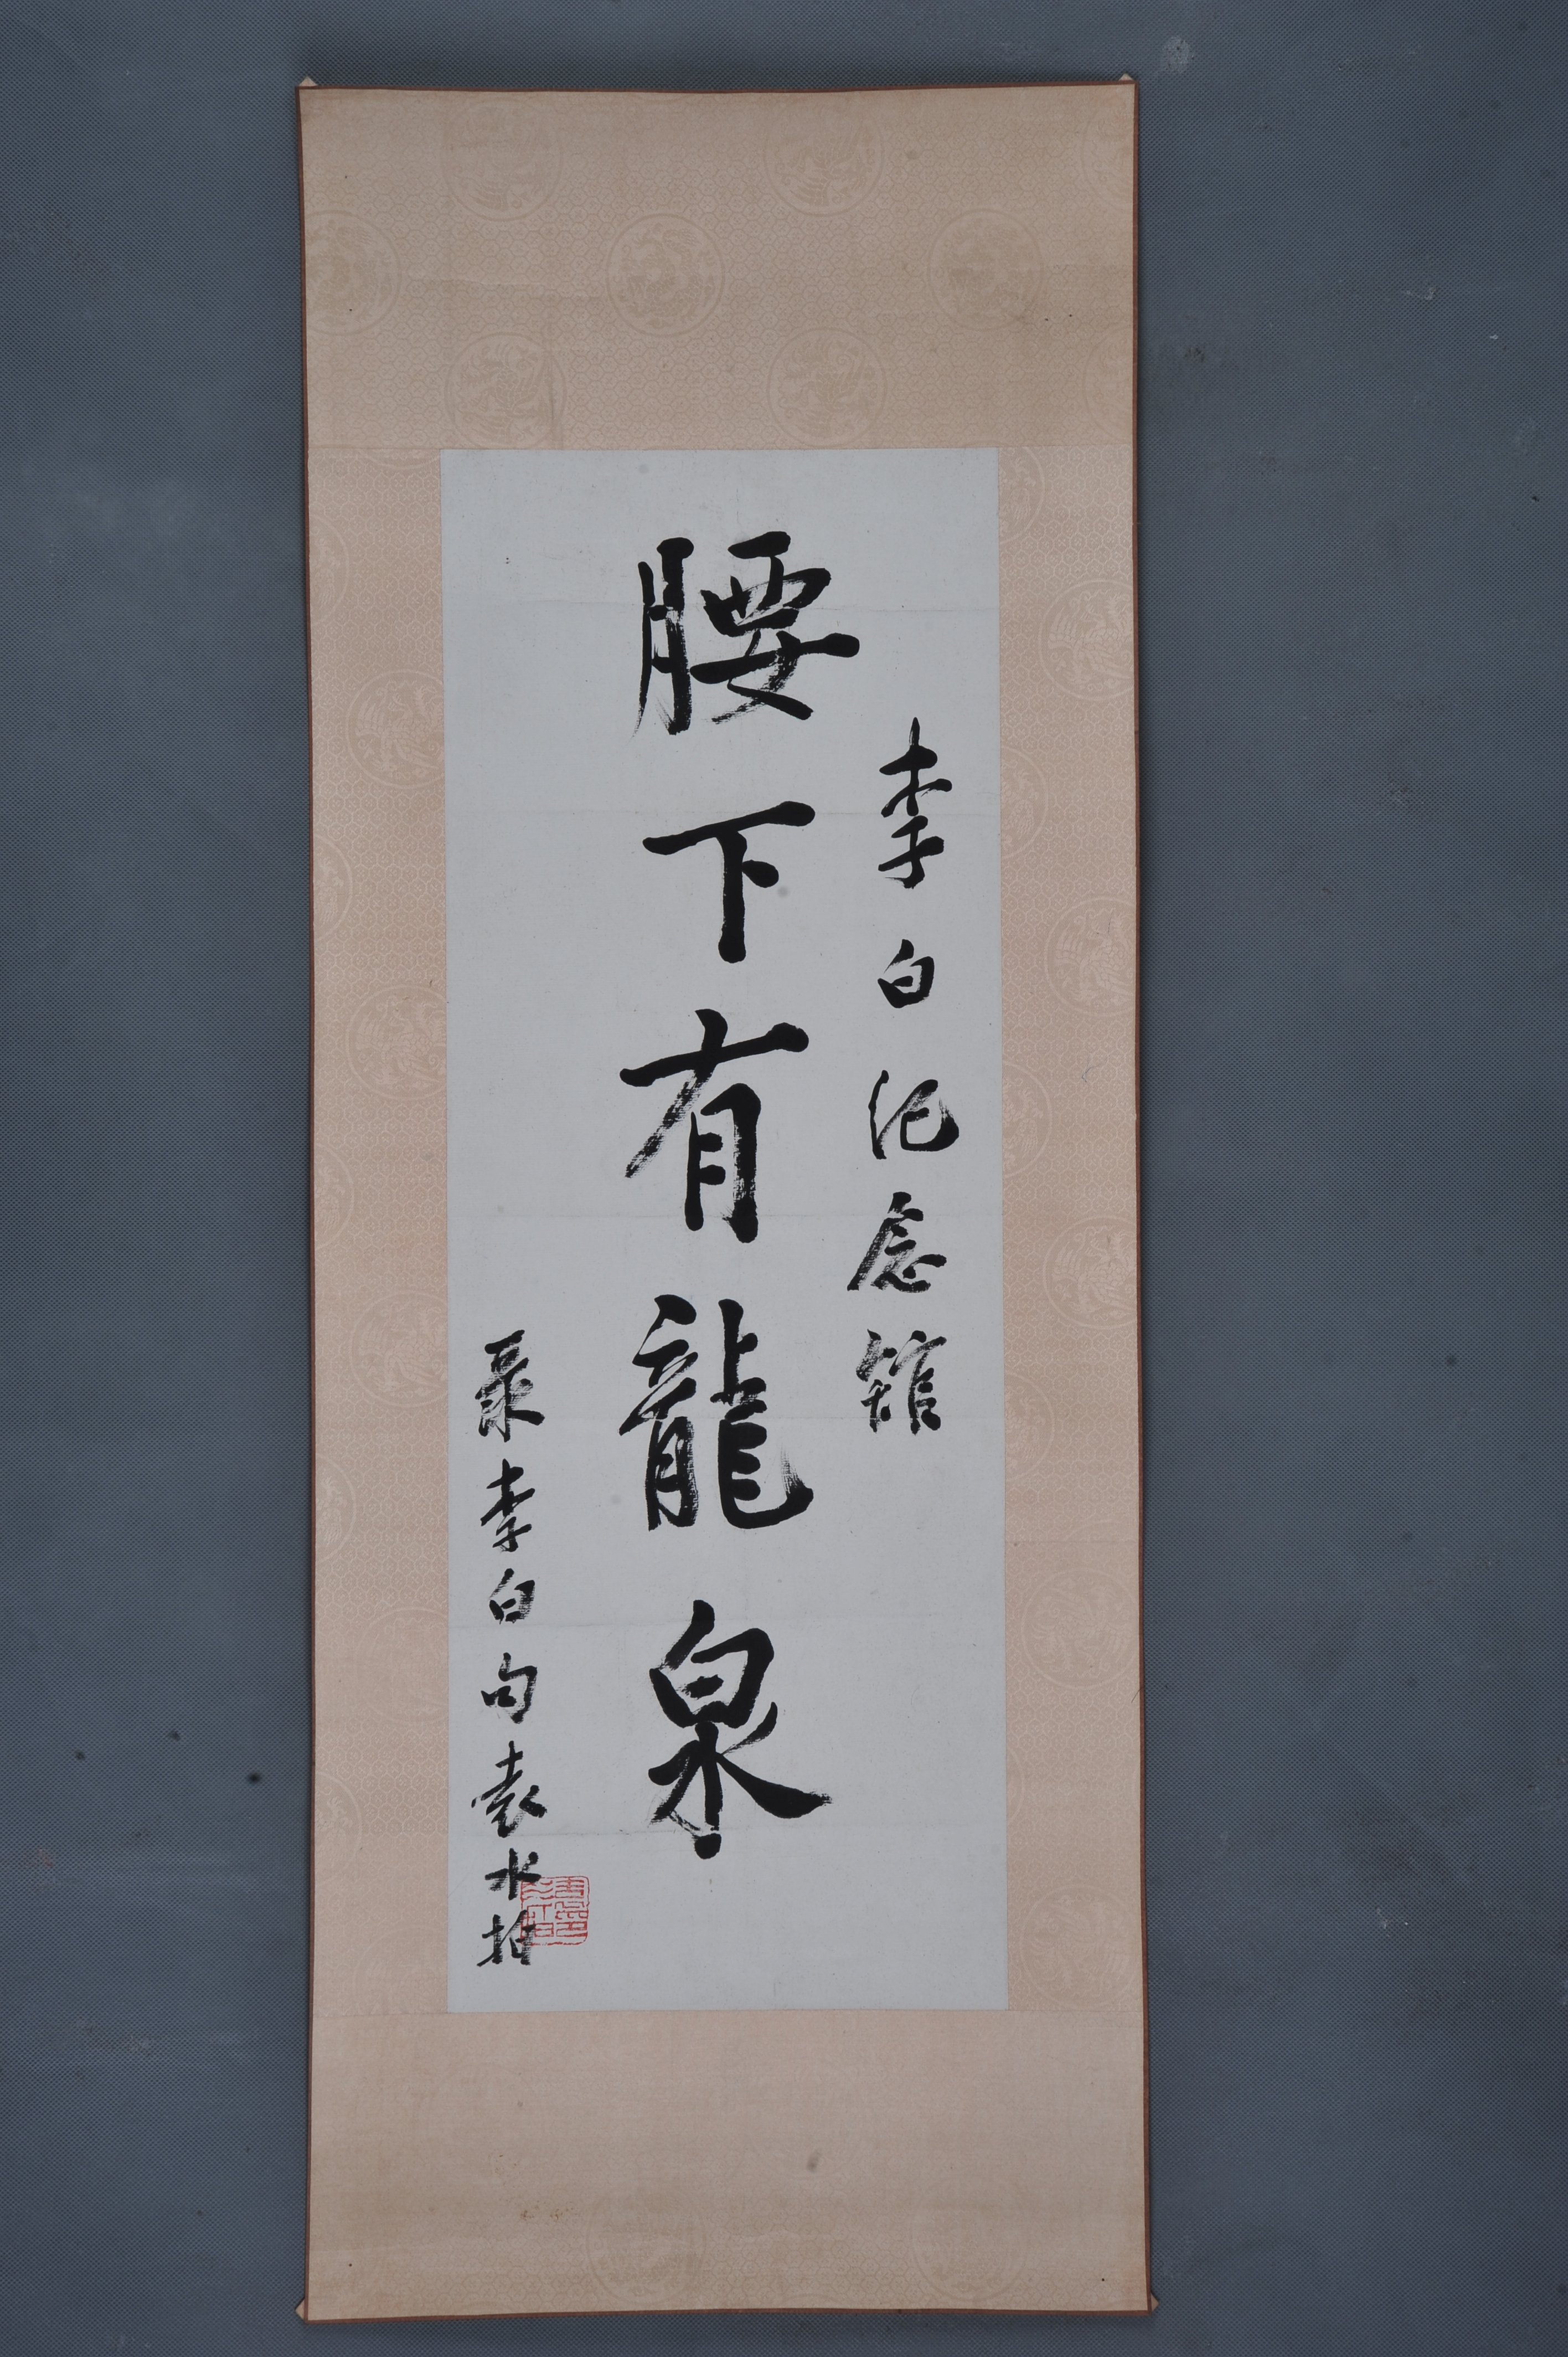 李白纪念館
腰下有龍泉
录李白句袁水拍